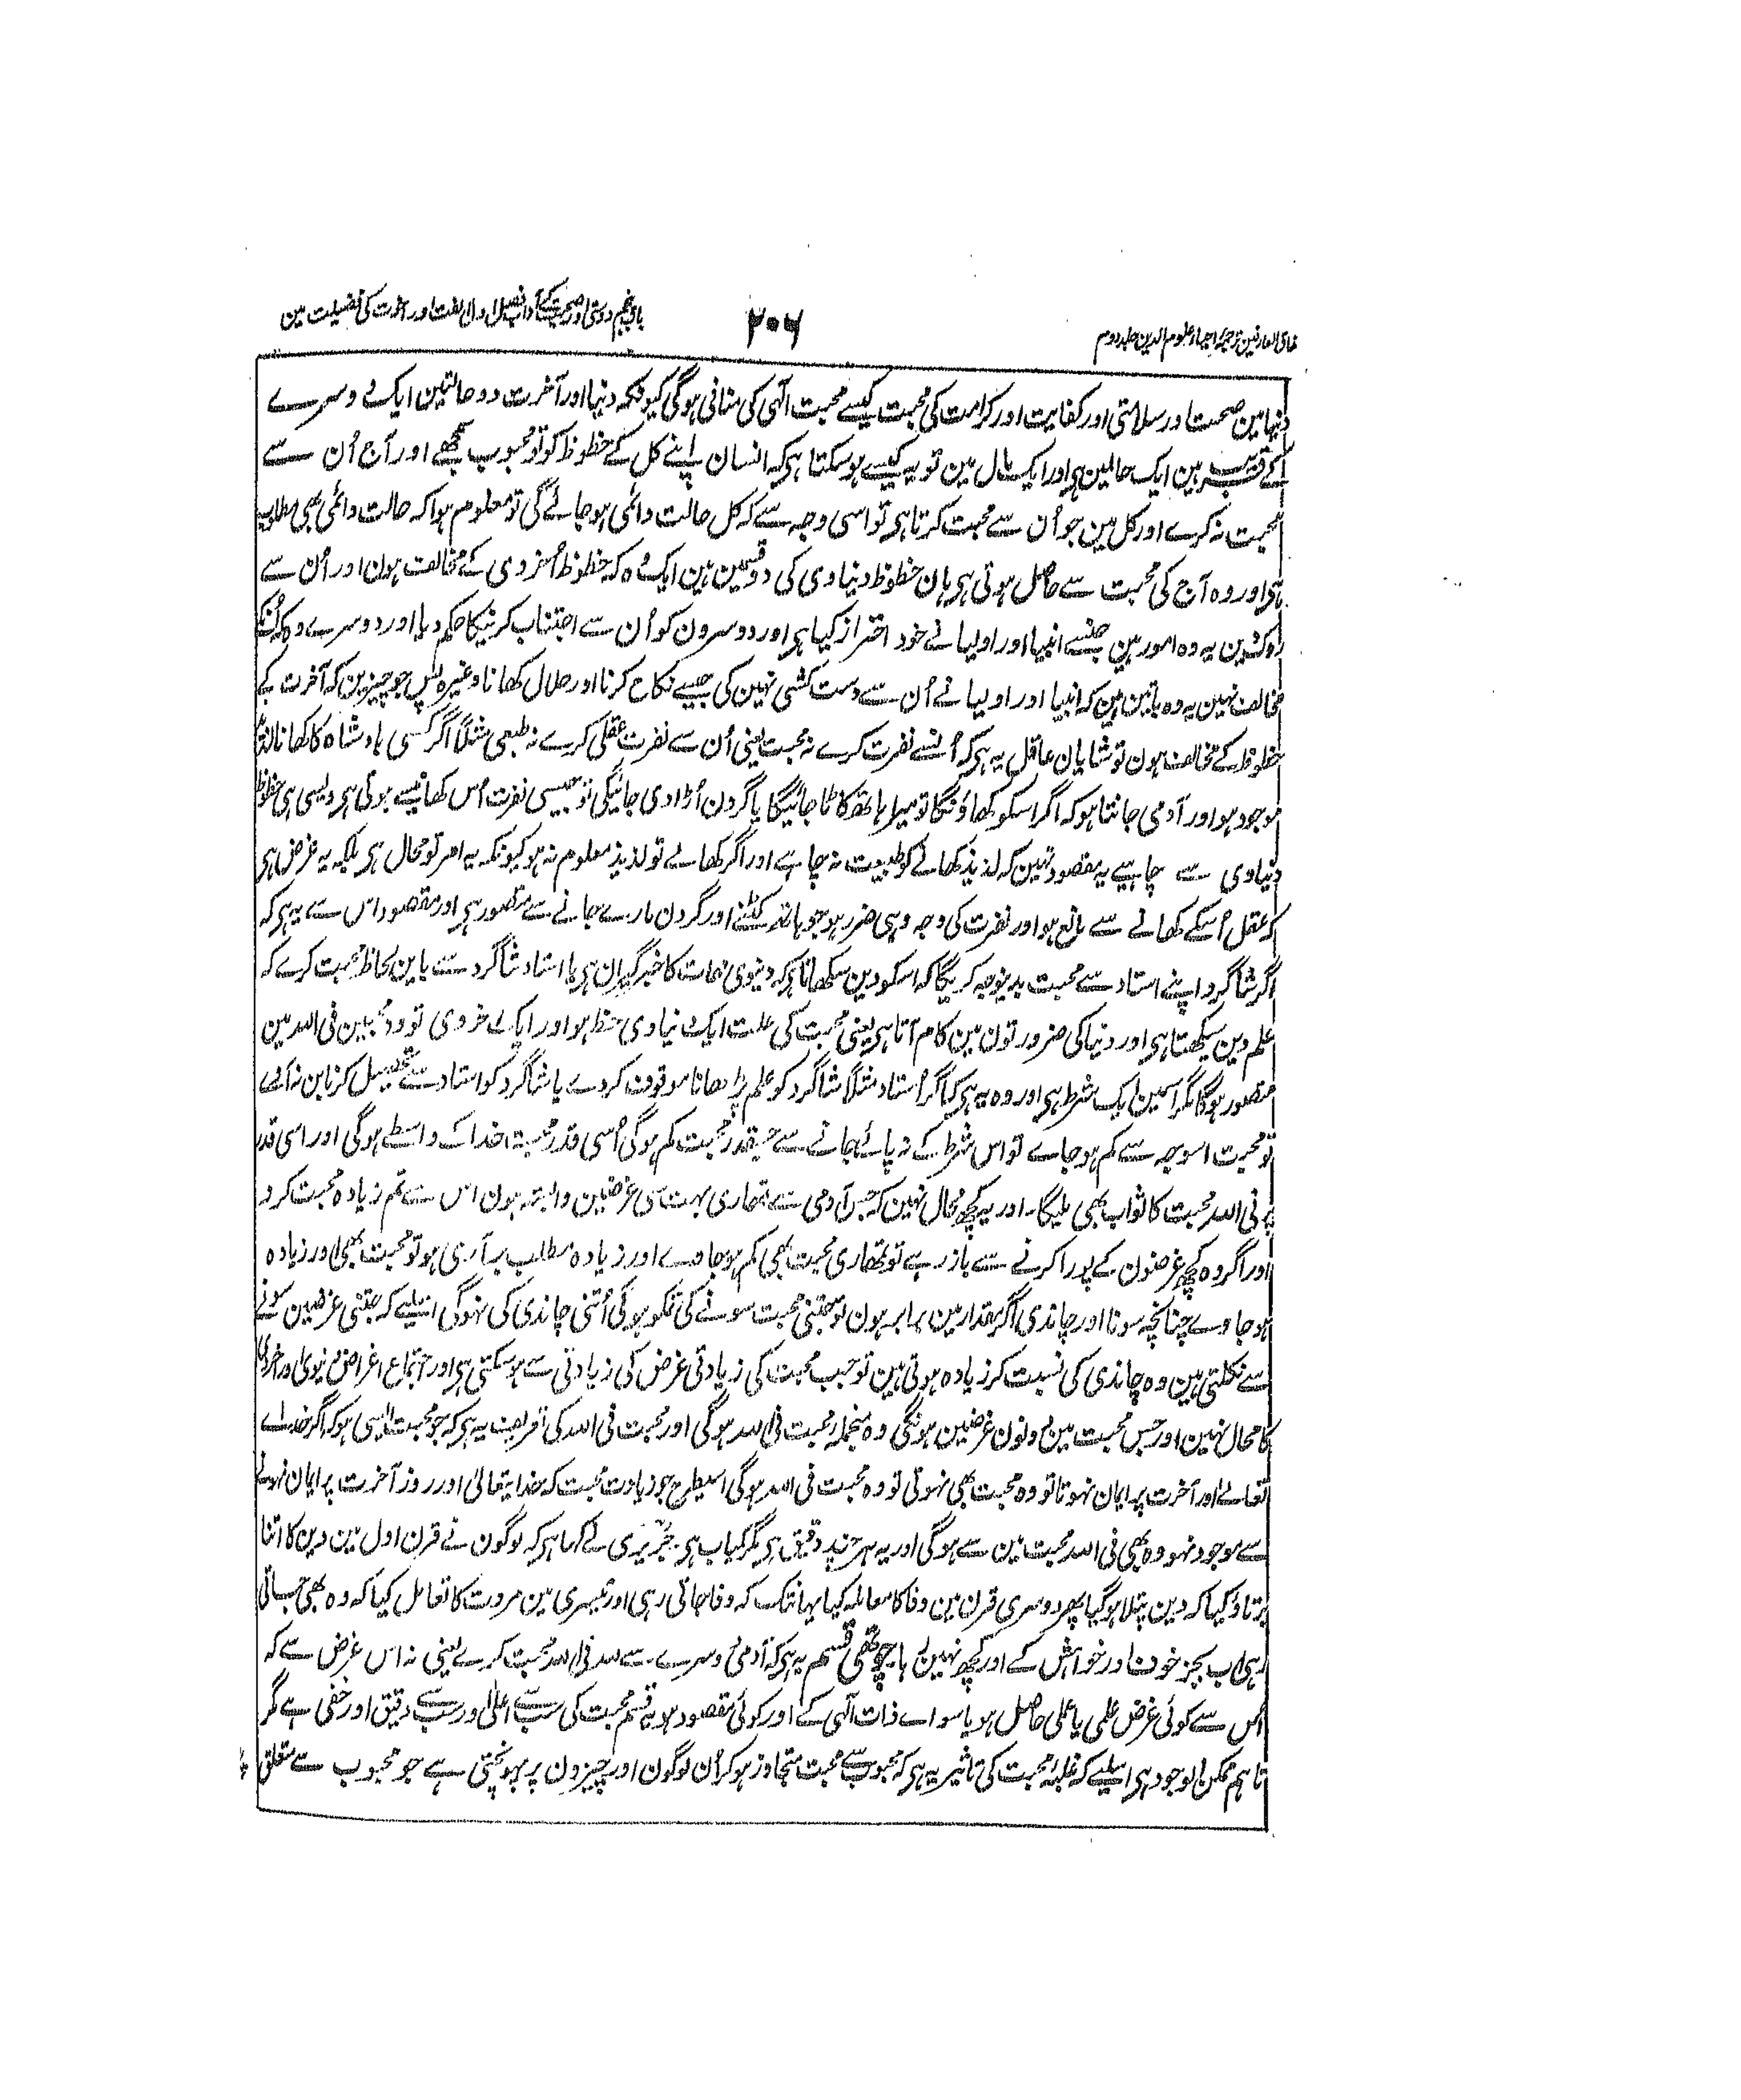 مذاق العارفین ترجمہ احیاء علوم الدین جلد دوم
۲۰۶
باب پنجم دوستی اور صحبت کے آداب فصل اول الفت اور اخوت کی فضیلت مین
دنیا مین صحت اور سلامتی اور کفایت اور کرامت کی محبت کیسے محبت الٰہی کی منافی ہوگی کیونکہ دنیا اور آخرت دو حالتین ایک دوسرے
کے قریب ہین ایک حال مین ہی اور ایک مآل مین تو یہ کیسے ہو سکتا ہی کہ انسان اپنے کل کے حظوظ کو تو محبوب سمجھے اور آج اُن سے
محبت نہ کرے اور کل مین جو اُن سے محبت کرتا ہی تو اسی وجہ سے کہ کل حالت دائمی ہو جائے گی تو معلوم ہوا کہ حالت دائمی بھی مطلوب
ہی اور وہ آج کی محبت سے حاصل ہوتی ہی ہان حظوظ دنیاوی کی دو قسمین ہین ایک وہ کہ حظوظ اُخروی کے مخالف ہون اور اُن سے
روکدین یہ وہ امور ہین جنسے انبیا اور اولیا نے خود احتراز کیا ہی اور دوسرون کو اُن سے اجتناب کرنیکا حکم دیا اور دوسرے وہ کہ اُنکے
مخالف نہین یہ وہ باتین ہین کہ انبیا اور اولیا نے اُن سے دست کشی نہین کی جیسے نکاح کرنا اور حلال کھانا وغیرہ پس جو چیزین کہ آخرت کے
حظوظ کے مخالف ہون تو شایان عاقل یہ ہی کہ اُنسے نفرت کرے نہ محبت یعنی اُن سے نفرت عقلی کرے نہ طبعی مثلاً اگر کسی بادشاہ کا کھانا لذیذ
موجود ہو اور آدمی جانتا ہو کہ اگر اسکو کھاؤنگا تو میرا ہاتھ کاٹا جائیگا یا گردن اُڑا دی جائیگی تو جیسی نفرت اُس کھانیسے ہوتی ہی ویسی ہی حظوظ
دنیاوی سے چاہیے یہ مقصود نہین کہ لذیذ کھانے کو طبیعت نہ چاہے اور اگر کھالے تو لذیذ معلوم نہ ہو کیونکہ یہ امر تو محال ہی بلکہ یہ غرض ہی
کہ عقل اُسکے کھانے سے مانع ہو اور نفرت کی وجہ وہی ضرر ہو جو ہاتھ کٹنے اور گردن مارے جانے سے متصور ہی اور مقصود اس سے یہ ہی کہ
اگر شاگرد اپنے استاد سے محبت بدینوجہ کریگا کہ اسکو دین سکھاتا ہی کہ دنیوی مہمات کا خبر گیران ہی یا استاد شاگرد سے باین لحاظ محبت کرے کہ
علم دین سیکھتا ہی اور دنیا کی ضرورتون مین کام آتا ہی یعنی محبت کی علت ایک دنیاوی حظ ہو اور ایک اخروی تو وہ محبین فی اللہ مین
متصور ہوگا مگر اسمین ایک شرط ہی اور وہ یہ ہی کہ اگر اُستاد مثلاً شاگرد کو علم پڑھانا موقوف کردے یا شاگرد کو استاد سے تحصیل کرنا بن نہ آئے
تو محبت اسوجہ سے کم ہو جاے تو اس شرط کے نہ پائے جانے سے جسقدر محبت کم ہوگی اُسی قدر محبت خدا کے واسطے ہوگی اور اسی قدر
پر فی اللہ محبت کا ثواب بھی ملیگا۔ اور یہ کچھ محال نہین کہ جس آدمی سے تمھاری بہت سی غرضین وابستہ ہون اس سے تم زیادہ محبت کرو
اور اگر وہ کچھ غرضون کے پورا کرنے سے باز رہے تو تمھاری محبت بھی کم ہو جاوے اور زیادہ مطلب برآری ہو تو محبت بھی اور زیادہ
ہو جاوے چنانچہ سونا اور چاندی اگر مقدار مین برابر ہون تو جتنی محبت سونے کی تمکو ہوگی اُتنی چاندی کی نہوگی اسلیے کہ جتنی غرضین سونے
سے نکلتی ہین وہ چاندی کی نسبت کر زیادہ ہوتی ہین تو جب محبت کی زیادتی غرض کی زیادتی سے ہو سکتی ہی اور اجتماع اغراض دنیوی اور اخروی
کا محال نہین اور جس محبت مین دونون غرضین ہونگی وہ منجملہ محبت فی اللہ ہوگی اور محبت فی اللہ کی تعریف یہ ہی کہ جو محبت ایسی ہو کہ اگر خداے
تعالے اور آخرت پر ایمان نہوتا تو وہ محبت بھی نہوتی تو وہ محبت فی اللہ ہوگی اسیطرح جو زیادت محبت کہ خدا یتعالیٰ اور روز آخرت پر ایمان نہونے
سے موجود نہو وہ بھی فی اللہ محبت مین سے ہوگی اور یہ ہر چند دقیق ہی مگر کمیاب ہی۔ جُریری نے کہا ہی کہ لوگون نے قرن اول مین دین کا اتنا
برتاؤ کیا کہ دین پتلا ہو گیا پھر دوسری قرن مین وفا کا معاملہ کیا یہانتک کہ وفا جاتی رہی اور تیسری مین مروت کا تعامل کیا کہ وہ بھی جاتی
رہی اب بجز خوف اور خواہش کے اور کچھ نہین رہا چوتھی قسم یہ ہی کہ آدمی دوسرے سے للہ فی اللہ محبت کرے یعنی نہ اس غرض سے کہ
اُس سے کوئی غرض علمی یا عملی حاصل ہو یا سواے ذات الٰہی کے اور کوئی مقصود ہو یہ قسم محبت کی سب سے اعلیٰ اور سب سے دقیق اور خفی ہے مگر
تاہم ممکن الوجود ہی اسلیے کہ غلبۂ محبت کی تاثیر یہ ہی کہ محبوب سے محبت متجاوز ہو کر اُن لوگون اور چیزون پر پہونچتی ہے جو محبوب سے متعلق